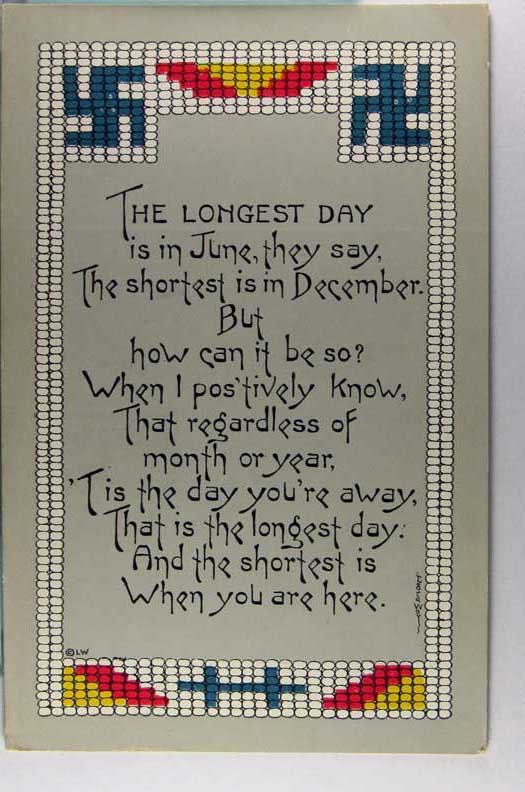 THE LONGEST DAY
is in June, they say,
The shortest is in December.
But
how can it be so?
When I pos'tively know,
That regardless of
month or year,
'Tis the day you're away,
That is the longest day:
And the shortest is
When you are here.
© LW